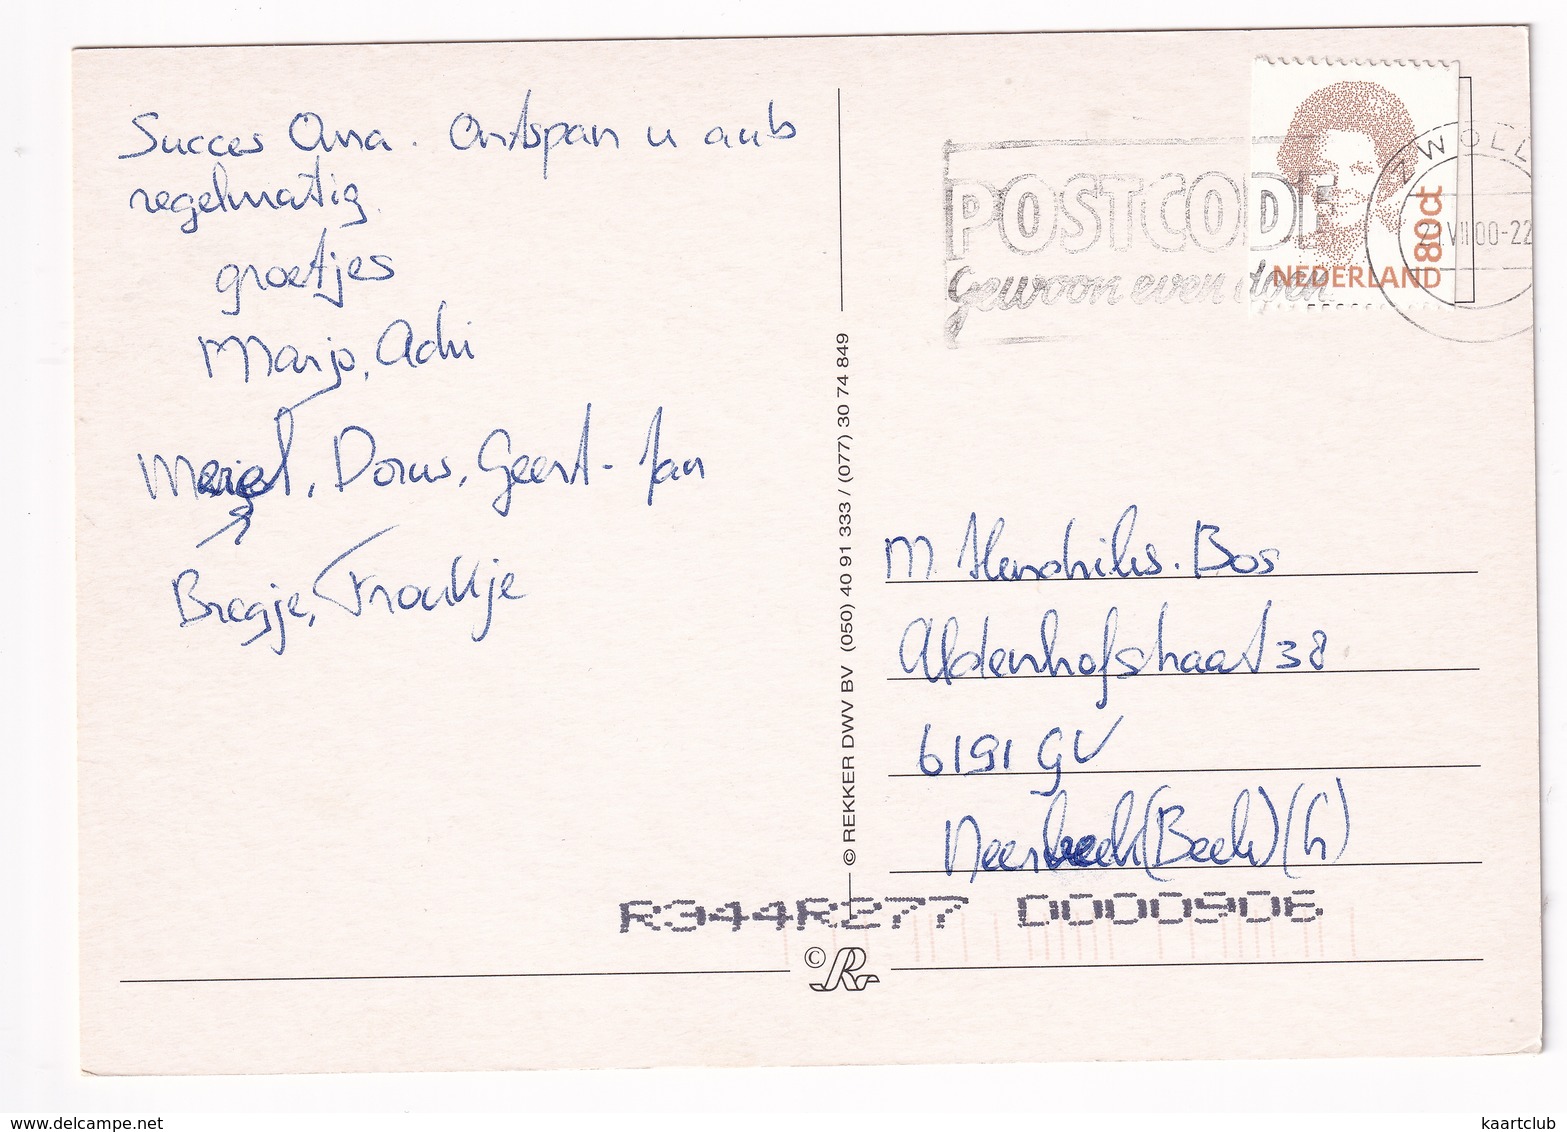 Succes Oma. Ontspan u aub
regelmatig.
groetjes
Marjo, Adri
Merel, Dorus, Geert-Jan
Bregje, Froukje
POSTCODE
Gewoon even doen
ZWOLL
VII 00-22
80ct
NEDERLAND
© REKKER DWV BV (050) 40 91 333 / (077) 30 74 849
M. Hendriks-Bos
Aldenhofstraat 38
6191 GV
Neerbeek (Beek) (L)
R344R277 0000906
©R
www.delcampe.net
kaartclub